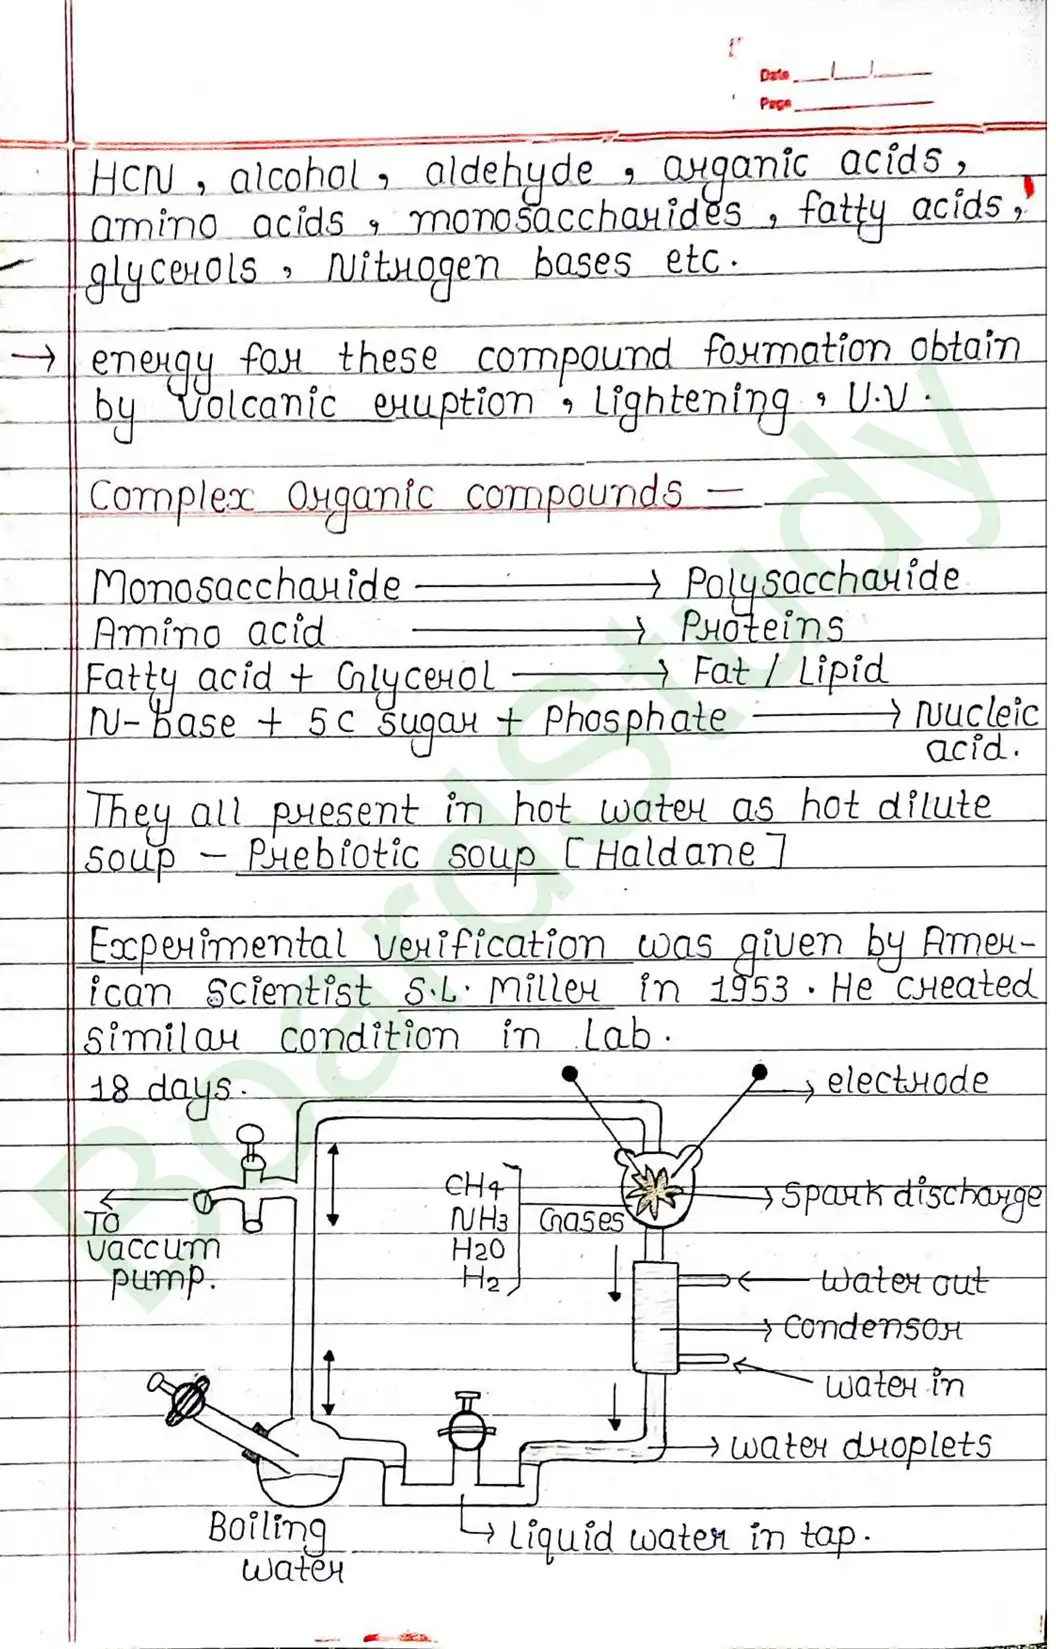 Date
Page
HCN, alcohol, aldehyde, organic acids,
amino acids, monosaccharides, fatty acids,
glycerols, Nitrogen bases etc.
→ energy for these compound formation obtain
by Volcanic eruption, Lightening, U.V.
Complex Organic compounds —
Monosaccharide → Polysaccharide
Amino acid → Proteins
Fatty acid + Glycerol → Fat / Lipid
N-base + 5C sugar + Phosphate → Nucleic
acid.
They all present in hot water as hot dilute
soup - Prebiotic soup [Haldane]
Experimental verification was given by Amer-
ican Scientist S.L. Miller in 1953. He created
similar condition in Lab.
18 days.
→ electrode
CH4
NH3
H2O
H2
Gases
→ Spark discharge
To
vaccum
pump.
water out
→ condensor
water in
→ water droplets
Boiling
water
→ Liquid water in tap.
BoardStudy